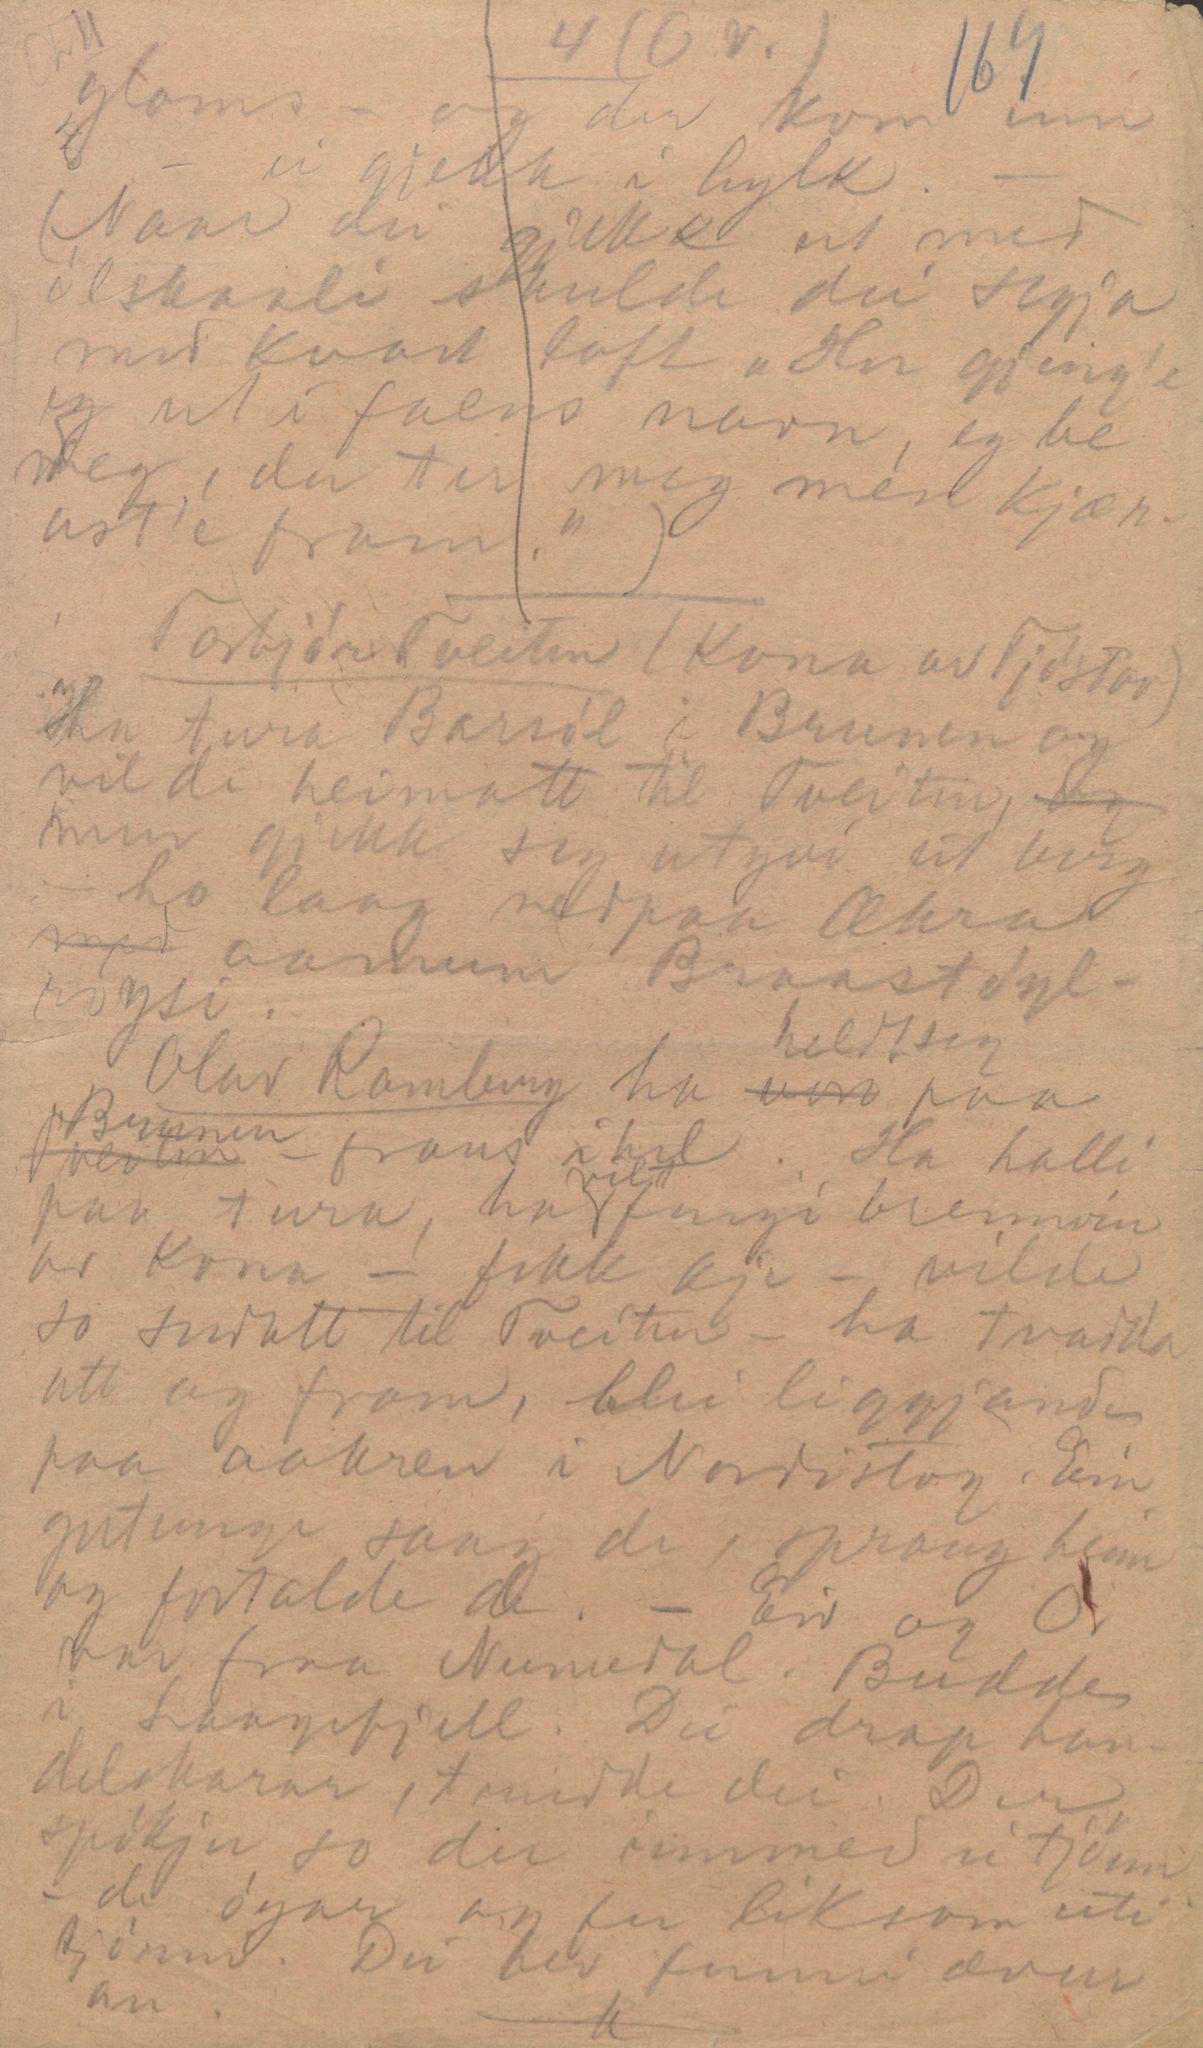 4 (O v.) 164
gloms - og der kom inn
- ei gjekk i hylk. -
(Naar dei gjekk ut med
ölskaali skulde dei segja
med kvart toft „Her gjeng'e
eg ut i faens navn, eg be
meg, du ter meg men kjær-
ast'e fram." )
Torbjör Tveiten (Kona av Tjöstov)
Ha tura Barsöl i Brunen og
vilde heimatt til Tveiten, og
men gjekk seg utyvi eit berg
- ho laag nedpaa Ækra
med aamum Braastöyl-
röysi.
heldt seg
Olav Romberg ha vore paa
Brunen
Tveiten - fraus ihel. Ha halli
vilt
paa tura, ha fingji brennvin
av Kona - fekk ikje - vilde
so sudatt til Tveiten - ha tradda
att og fram, blei liggjandes
paa aakren i Nordistog. Ein
gutunge saag de, sprang heim
og fortalde de. - Eiv og O
var fraa Numedal. Budde
i Haagefjell. Dei drap han-
delskarar, trudde dei. Der
spökjer so der immed ei tjönn
- de ögar og fer liksom uti
tjönni. Dei hev funni ævur
an.